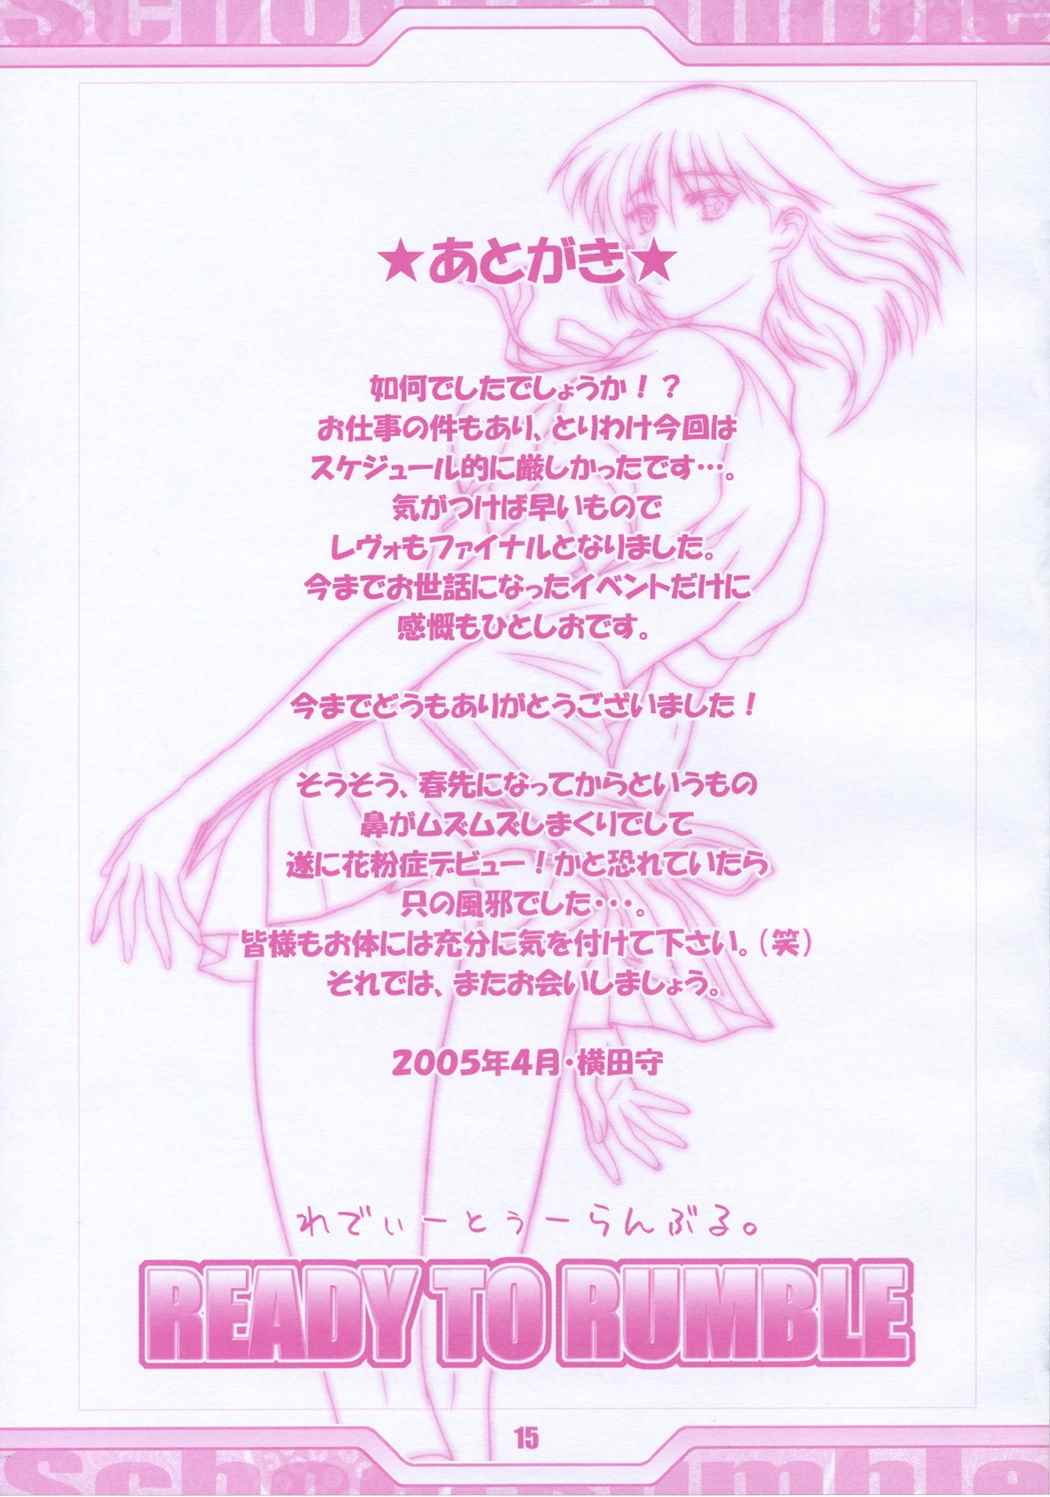 School Rumble
★あとがき★
如何でしたでしょうか!?
お仕事の件もあり、とりわけ今回は
スケジュール的に厳しかったです…。
気がつけば早いもので
レヴォもファイナルとなりました。
今までお世話になったイベントだけに
感慨もひとしおです。
今までどうもありがとうございました!
そうそう、春先になってからというもの
鼻がムズムズしまくりでして
遂に花粉症デビュー!かと恐れていたら
只の風邪でした・・・。
皆様もお体には充分に気を付けて下さい。(笑)
それでは、またお会いしましょう。
2005年4月・横田守
れでぃーとぅーらんぶる。
READY TO RUMBLE
15
School Rumble